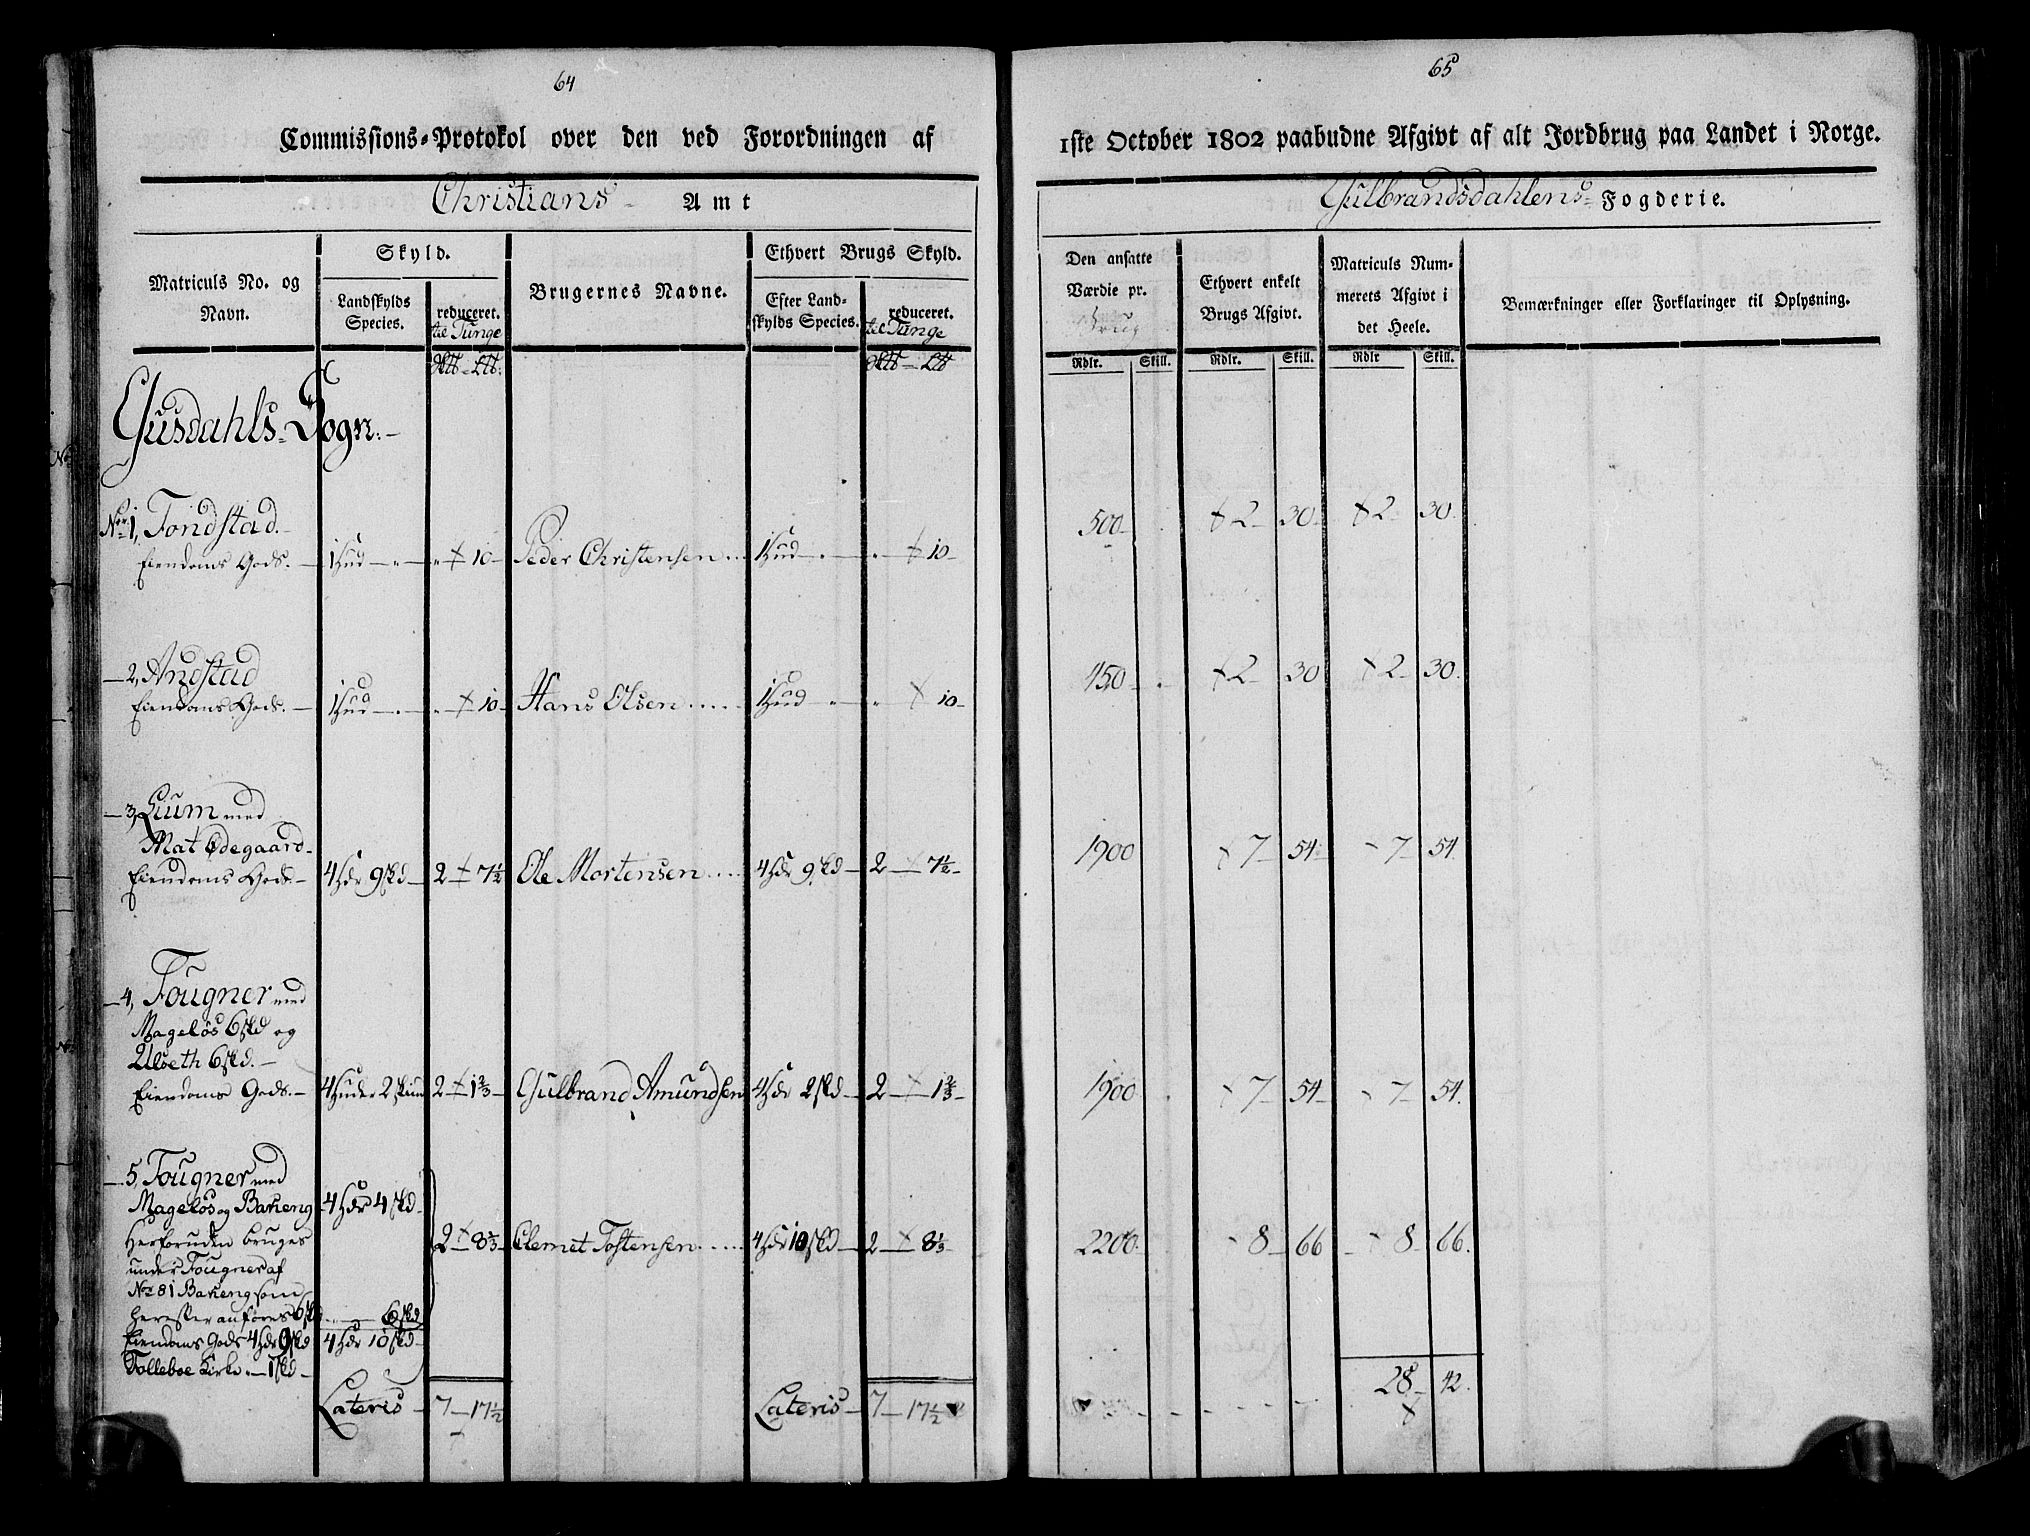 64
Commissions-Protokol over den ved Forordningen af
Christians Amt
Matriculs No. og Navn.
Skyld.
Landskylds Species.
reduceret.
til Tunge
Brugernes Navne.
Ethvert Brugs Skyld.
Efter Landskylds Species.
reduceret.
til Tunge
Gusdahls-Sogn:-
No 1, Fondstad.-
Eiendoms Gods. 1 Hud 10 Peder Christensen 1 Hud 10
2, Andstad
Eiendoms Gods. 1 Hud 10 Hans Olsen 1 Hud 10
3, Lium med
Mat Ødegaard
Eiendoms Gods. 4 Hdr 9 skd 2 7½ Ole Mortensen 4 Hdr 9 skd 2 7½
4, Fougner med
Mageløs 6 skd og
Ulseth 6 skd.
Eiendoms Gods. 4 Huder 2 skind 2 1⅔ Gulbrand Amundsen 4 Hdr 2 skd 2 1⅔
5, Fougner med
Mageløs og Bakeng 4 Hdr 4 skd
Herforuden bruges 2 8⅓ Clemet Tostensen 4 Hdr 10 skd 2 8⅓
under Fougner af
No 81 Bakeng som
herefter anføres 6 skd 6 skd
Eiendoms Gods 4 Hdr 9 skd 4 Hdr 10 skd
Folleboe Kirke 1 skd
Lateris 7 17½ Lateris 7 17½
65
1ste October 1802 paabudne Afgivt af alt Jordbrug paa Landet i Norge.
Gulbrandsdahlens Fogderie.
Den ansatte Værdie pr. Brug
Ethvert enkelt Brugs Afgivt.
Matriculs Nummerets Afgivt i det Heele.
Bemærkninger eller Forklaringer til Oplysning.
Rdlr. Skill. Rdlr. Skill. Rdlr Skill.
500 2 30 2 30
450 2 30 2 30
1900 7 54 7 54
1900 7 54 7 54
2200 8 66 8 66
28 42